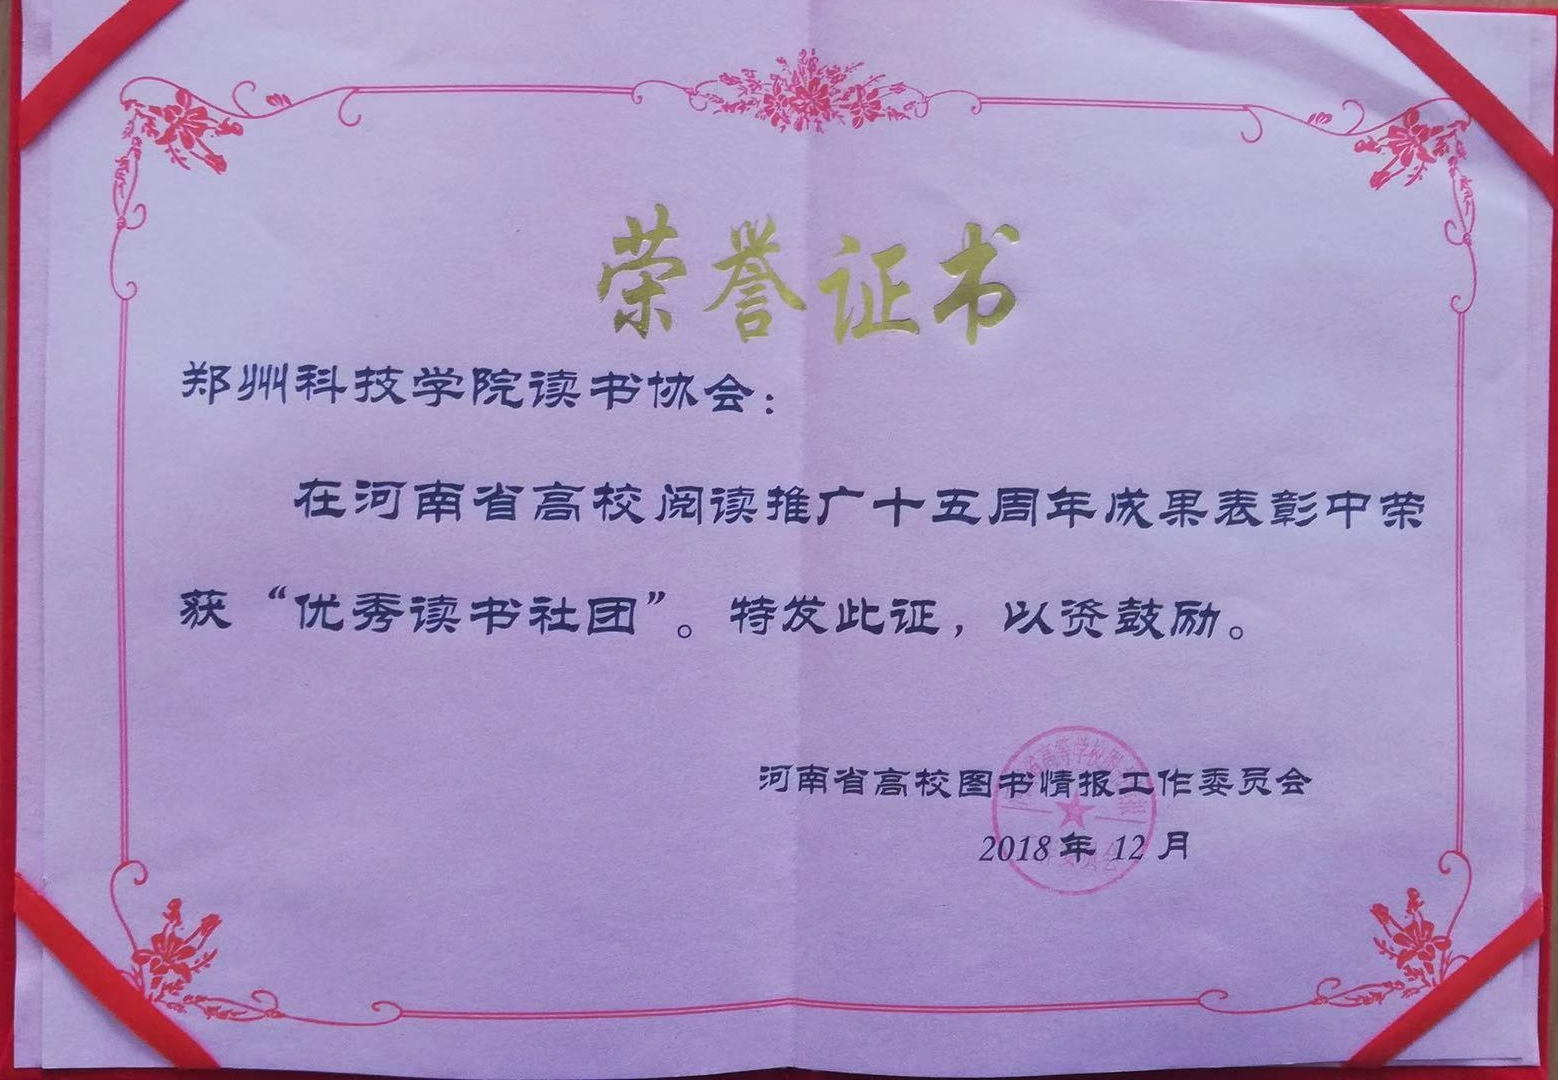 荣誉证书
郑州科技学院读书协会：
在河南省高校阅读推广十五周年成果表彰中荣
获“优秀读书社团”。特发此证，以资鼓励。
河南省高校图书情报工作委员会
2018年12月